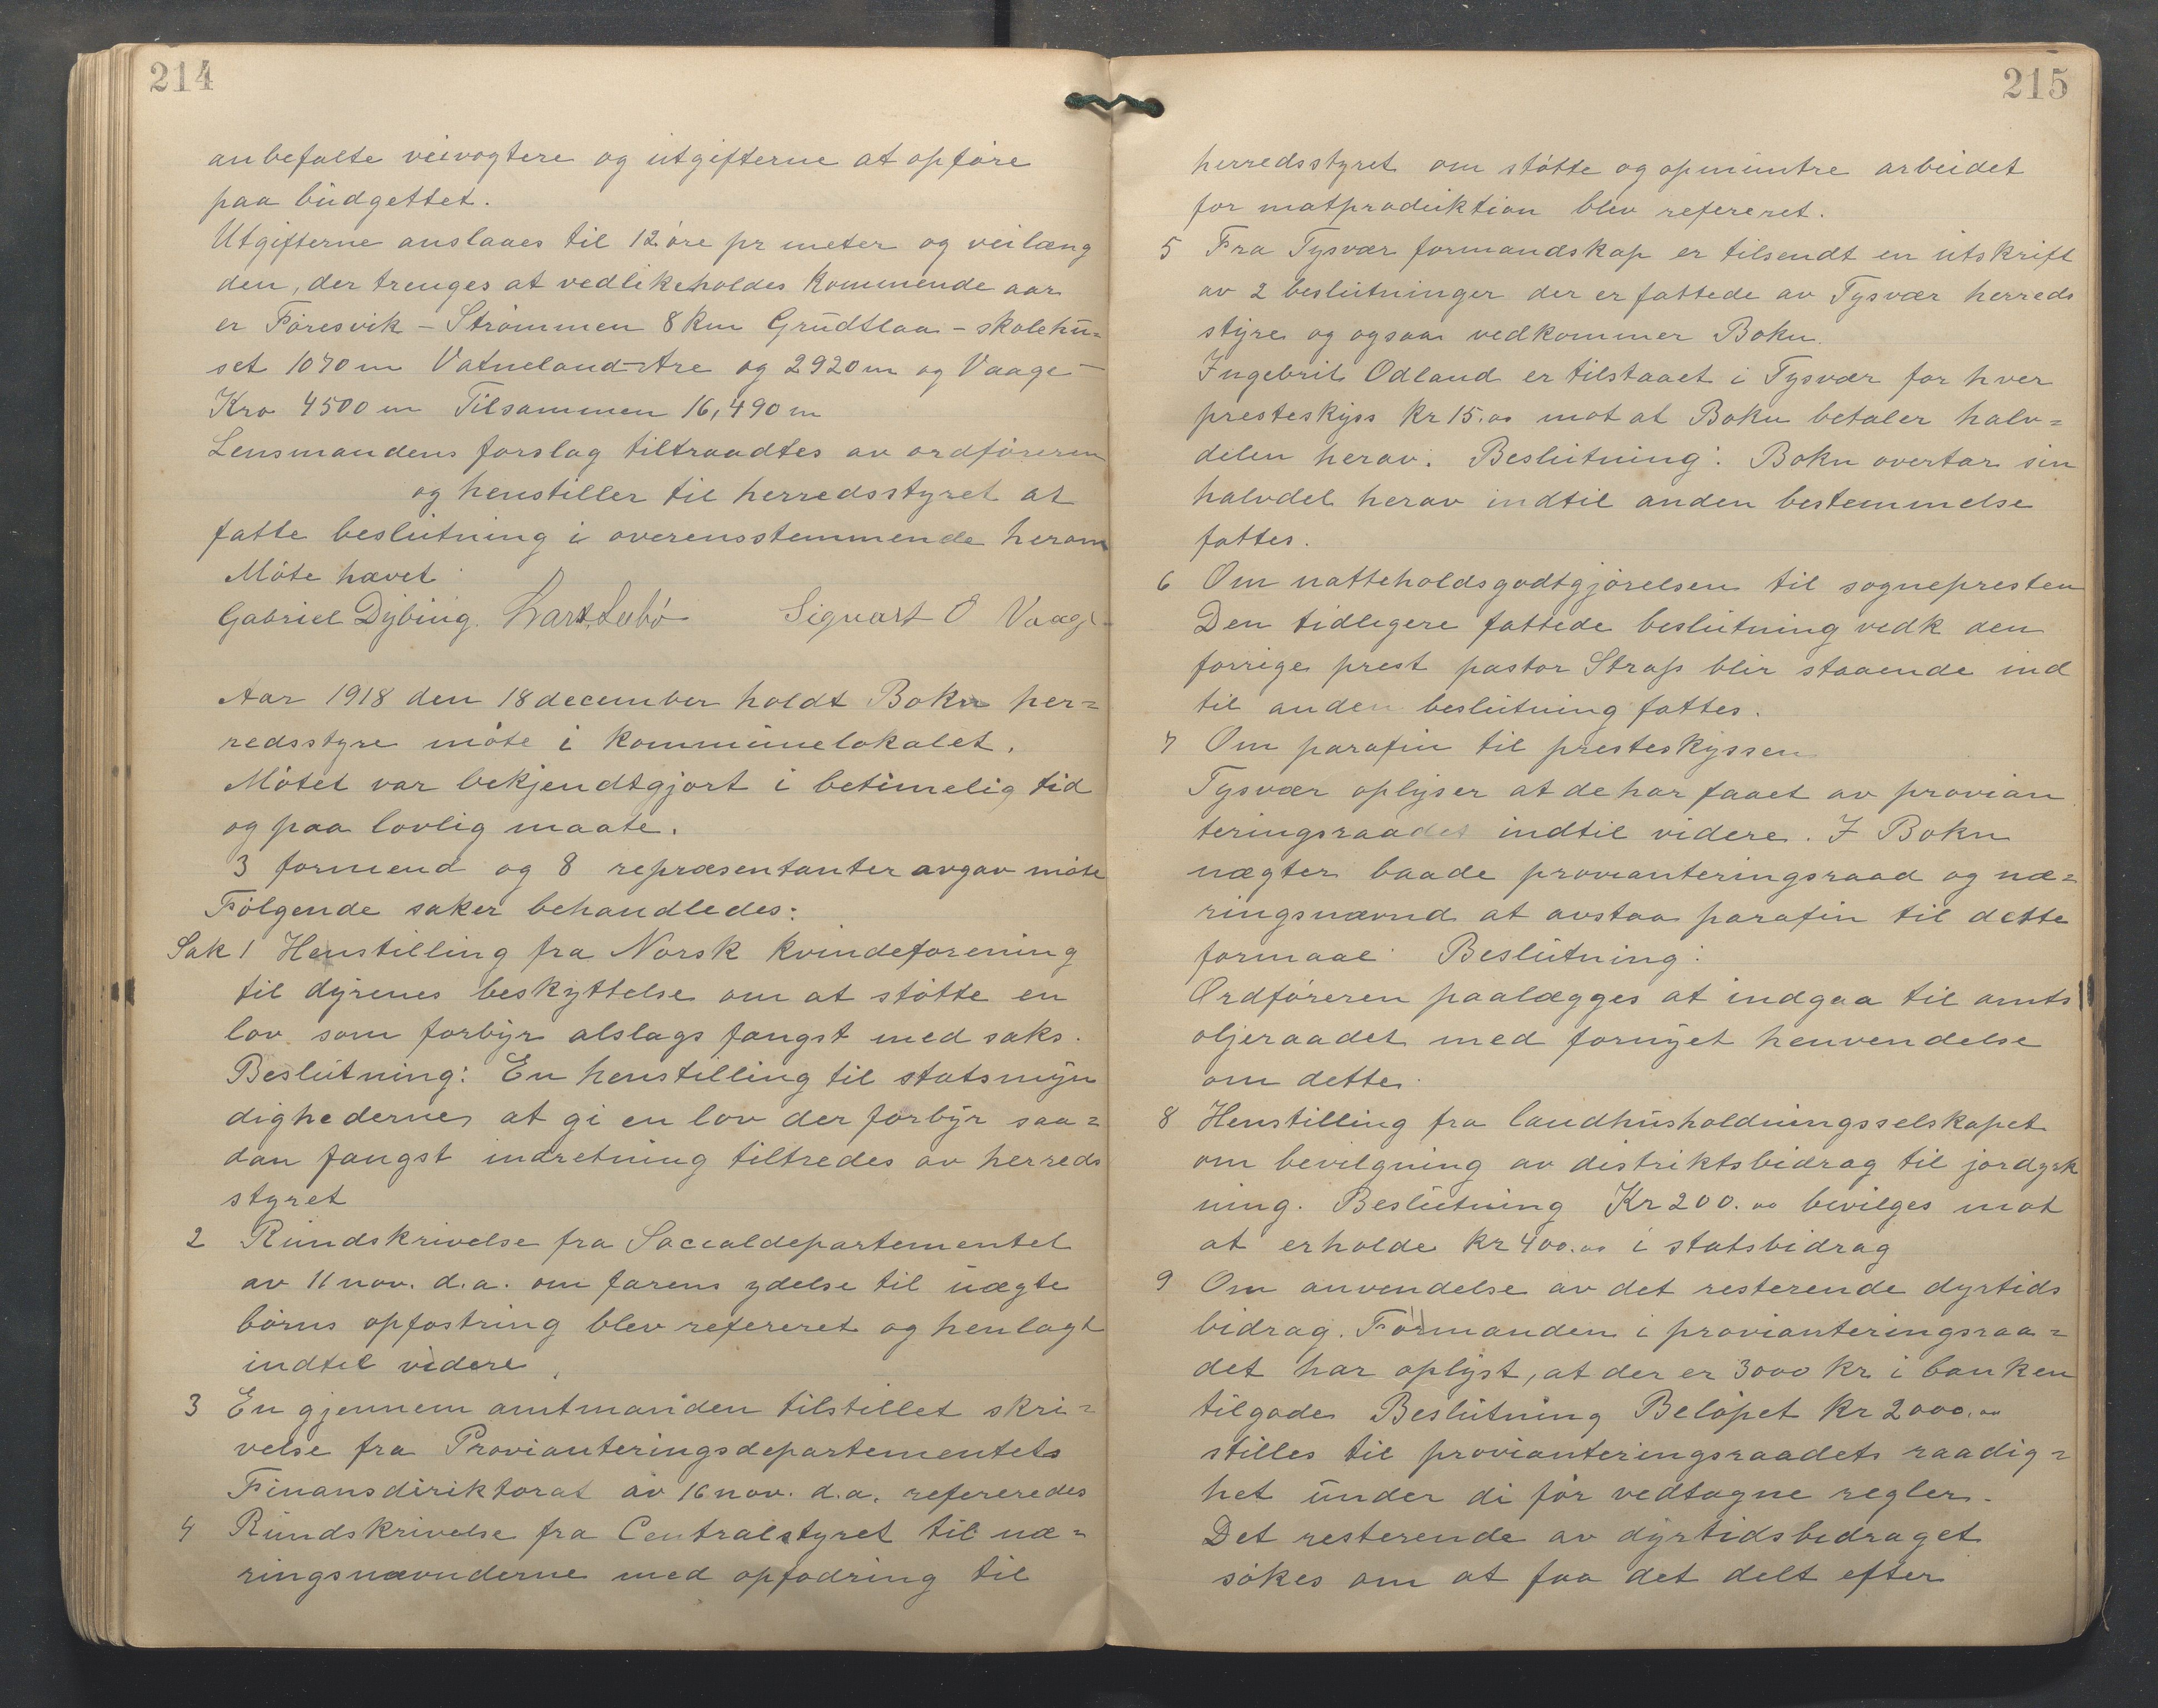 214
anbefalte veivogtere og utgifterne at opføre
paa budgettet.
Utgifterne anslaaes til 12 øre pr meter og veilæng
den, der trenges at vedlikeholdes kommende aar
er Føresvik - Strømmen 8 km Grudtlaa - skolehu=
set 1070 m Vatneland-Are og 2920 m og Vaage -
Kro 4500 m Tilsammen 16,490 m
Lensmandens forslag tiltraadtes av ordføreren
og henstiller til herredsstyret at
fatte beslutning i overensstemmende herom
Møte hævet
Gabriel Dybing. Lars Leebø Sigvart O Vaage

Aar 1918 den 18 december holdt Bokn her=
redsstyre møte i kommunelokalet.
Møtet var bekjendtgjort i betimelig tid
og paa lovlig maate.
3 formend og 8 repræsentanter avgav møte
Følgende saker behandledes:
Sak 1 Henstilling fra Norsk kvindeforening
til dyrenes beskyttelse om at støtte en
lov som forbyr alslags fangst med saks.
Beslutning: En henstilling til statsmyn
dighederne at gi en lov der forbyr saa=
dan fangst indretning tiltredes av herreds
styret
2 Rundskrivelse fra Socialdepartementet
av 11 nov. d.a. om farens ydelse til uægte
børns opfostring blev refereret og henlagt
indtil videre.
3 En gjennem amtmanden tilstillet skri=
velse fra Provianteringsdepartementets
Finansdiriktorat av 16 nov. d.a. refereredes
4 Rundskrivelse fra Centralstyret til næ=
ringsnævnderne med opfodring til

215
herredsstyret om støtte og opmuntre arbeidet
for matproduktion blev refereret.
5 Fra Tysvær formandskap er tilsendt en utskrift
av 2 beslutninger der er fattede av Tysvær herreds
styre og ogsaa vedkommer Bokn.
Ingebrit Odland er tilstaaet i Tysvær for hver
presteskyss kr 15.00 mot at Bokn betaler halv=
delen herav. Beslutning: Bokn overtar sin
halvdel herav indtil anden bestemmelse
fattes.
6 Om natteholdsgodtgjørelsen til sognepresten
Den tidligere fattede beslutning vedk den
forrige prest pastor Strass blir staaende ind
til anden beslutning fattes.
7 Om parafin til presteskyssen
Tysvær oplyser at de har faaet av provian
teringsraadet indtil videre. I Bokn
nægter baade provianteringsraad og næ=
ringsnævnd at avstaa parafin til dette
formaal Beslutning:
Ordføreren paalægges at indgaa til amts
oljeraadet med fornyet henvendelse
om dette.
8 Henstilling fra landhusholdningsselskapet
om bevilgning av distriktsbidrag til jordyrk
ning. Beslutning Kr 200.00 bevilges mot
at erholde kr 400.00 i statsbidrag
9 Om anvendelse av det resterende dyrtids
bidrag. Formanden i provianteringsraa=
det har oplyst, at der er 3000 kr i banken
tilgode Beslutning Beløpet kr 2000.00
stilles til provianteringsraadets raadig=
het under di før vedtagne regler.
Det resterende av dyrtidsbidraget
søkes om at faa det delt efter